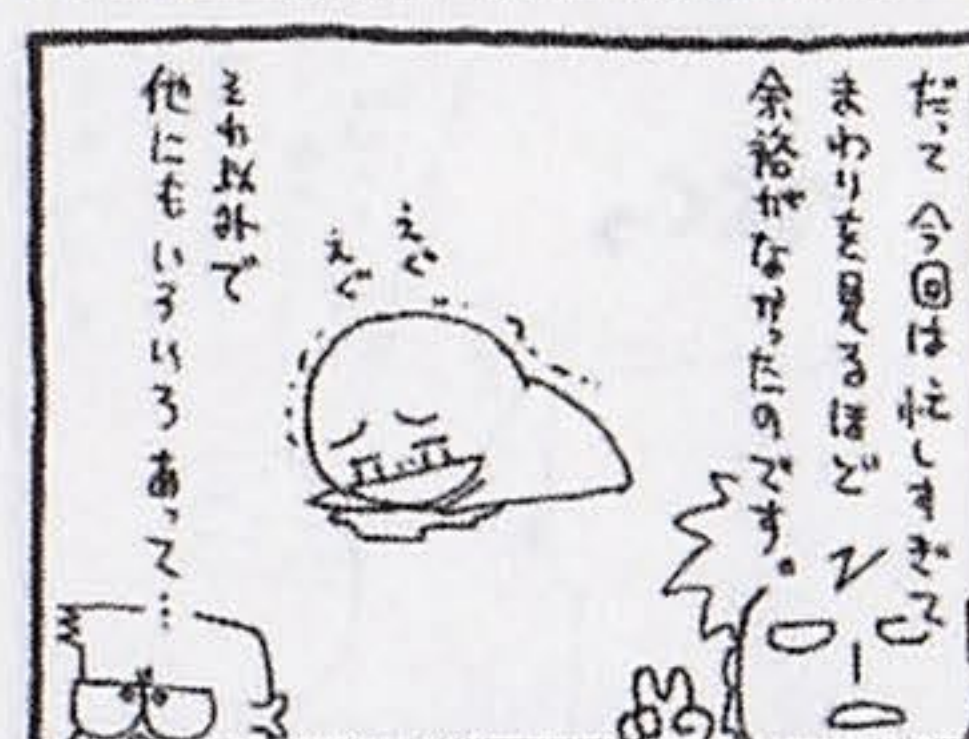 だって今回は忙しすぎて
まわりを見るほど
余裕がなかったのです。
えぐ
えぐ
それ以外で
他にもいろいろあって…